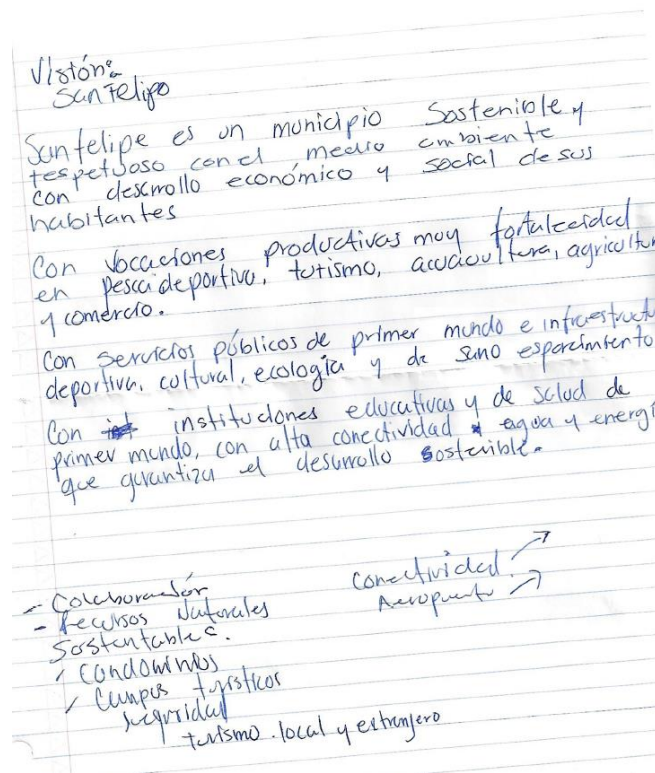 Visión:
San Felipe
San felipe es un municipio Sostenible y
respetuoso con el medio ambiente
con desarrollo económico y social de sus
habitantes
Con Vocaciones productivas muy fortalecidad
en pesca deportiva, turismo, acuacultura, agricultur
y comercio.
Con servicios públicos de primer mundo e infraestructu
deportiva, cultural, ecología y de sano esparcimiento
Con instituciones educativas y de salud de
primer mundo, con alta conectividad agua y energí
que garantiza el desarrollo sostenible.
Conectividad
Aeropuerto
- Colaboración
- Recursos Naturales
Sostentables.
Condominios
Campos turísticos
seguridad
turismo local y extranjero